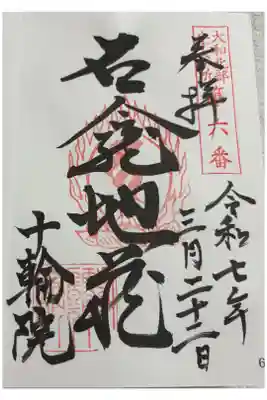 大和北部
第六番
奉拝
令和七年
三月二十二日
石龕地蔵
十輪院
6